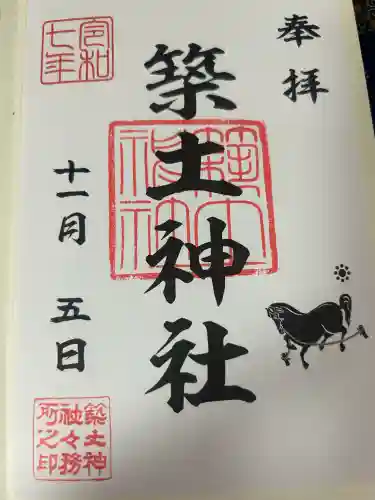 奉拝
築土神社
築土神社
令和七年
十一月五日
築土神社々務所之印